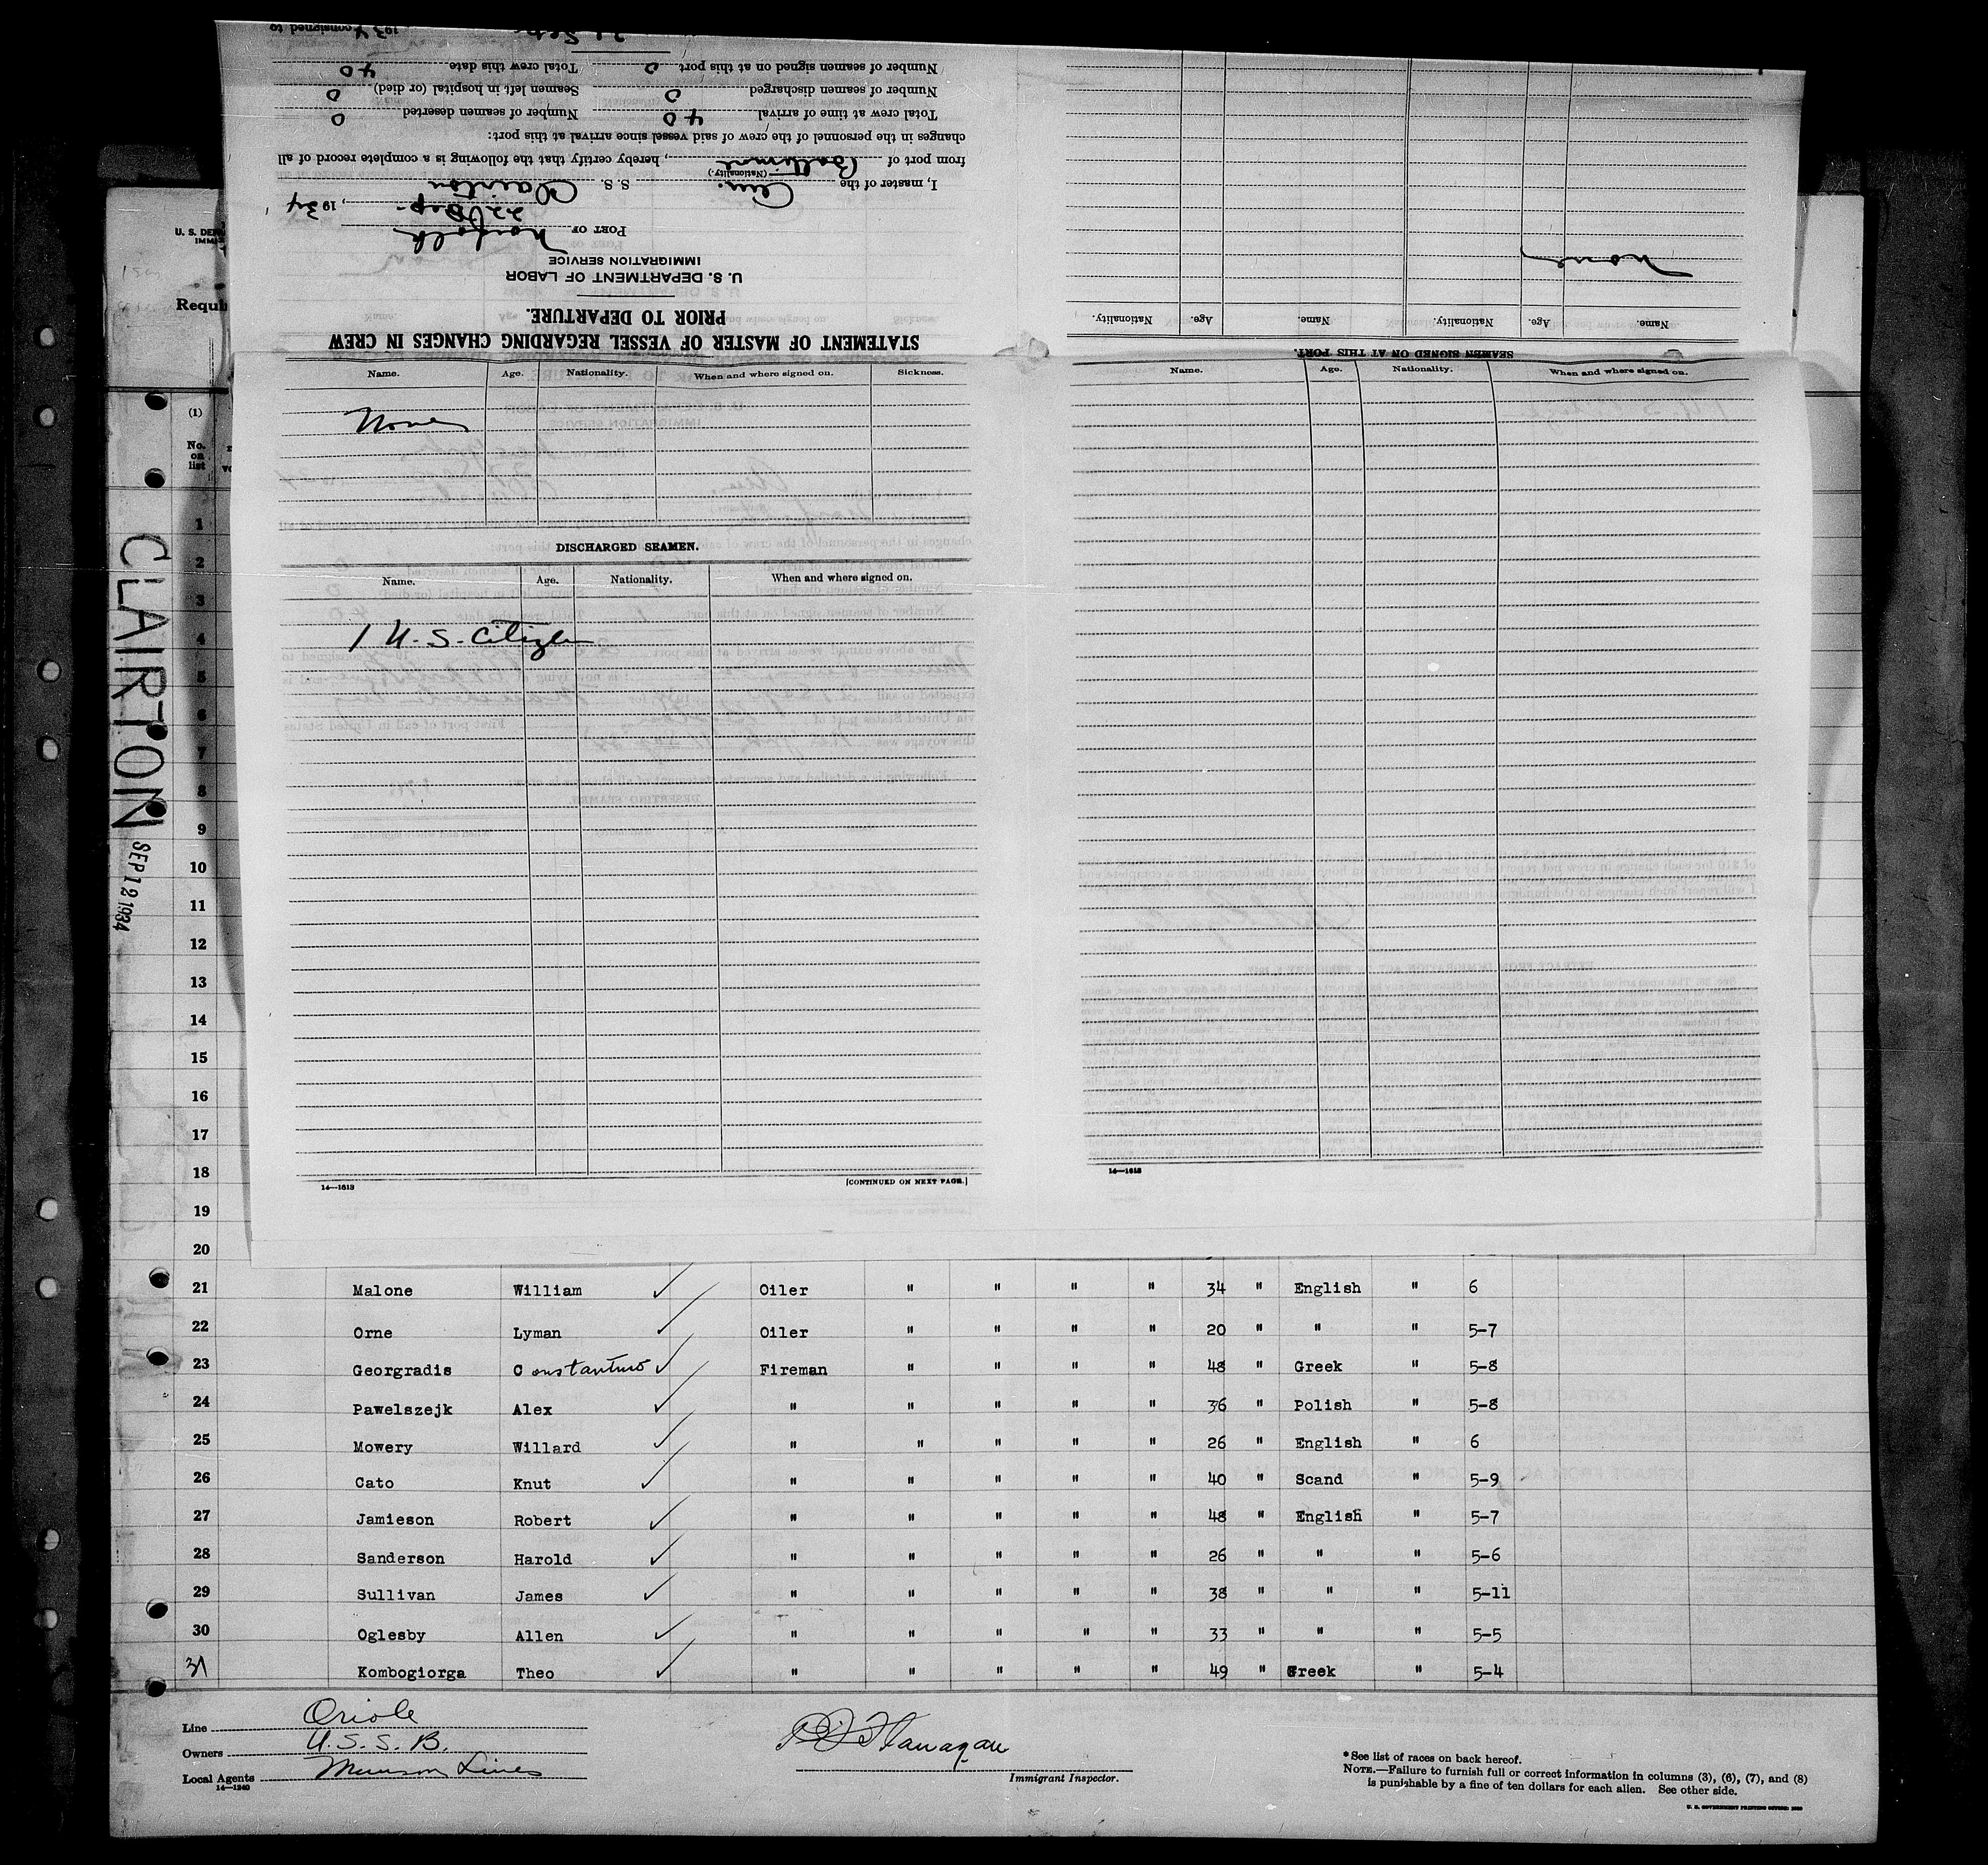 1934 consigned to
Number of seamen signed on at this port 0 Total crew this date 40
Number of seamen discharged 0 Seamen left in hospital (or died) 0
Total crew at time of arrival 40 Number of seamen deserted 0
changes in the personnel of the crew of said vessel since arrival at this port:
from port of Baltimore, hereby certify that the following is a complete record of all
(Nationality.)
I, master of the Am. S. S. Clairton
22 Sep-, 1934
PORT OF Norfolk
IMMIGRATION SERVICE
U. S. DEPARTMENT OF LABOR
PRIOR TO DEPARTURE.
STATEMENT OF MASTER OF VESSEL REGARDING CHANGES IN CREW
None
Name. Age. Nationality. Name. Age. Nationality.
SEAMEN SIGNED ON AT THIS PORT.
U. S. DE
IMMI
Requi
(1)
No. on list
CLAIRTON
SEP 12 1934
Name. Age. Nationality. When and where signed on. Sickness.
None
DISCHARGED SEAMEN.
Name. Age. Nationality. When and where signed on.
1 U. S. Citizen
14—1613 [CONTINUED ON NEXT PAGE.]
Name. Age. Nationality. When and where signed on.
14—1613
1
2
3
4
5
6
7
8
9
10
11
12
13
14
15
16
17
18
19
20
21 Malone William ✓ Oiler " " " " 34 " English " 6
22 Orne Lyman ✓ Oiler " " " " 20 " " " 5-7
23 Georgradis Constantino ✓ Fireman " " " " 48 " Greek " 5-8
24 Pawelszejk Alex ✓ " " " " " 36 " Polish " 5-8
25 Mowery Willard ✓ " " " " " 26 " English " 6
26 Cato Knut ✓ " " " " " 40 " Scand " 5-9
27 Jamieson Robert ✓ " " " " " 48 " English " 5-7
28 Sanderson Harold ✓ " " " " " 26 " " " 5-6
29 Sullivan James ✓ " " " " " 38 " " " 5-11
30 Oglesby Allen ✓ " " " " " 33 " " " 5-5
31 Kombogiorga Theo ✓ " " " " " 49 " Greek " 5-4
Line Oriole
Owners U. S. S. B.
Local Agents Munson Lines
14—1240
Flanagan
Immigrant Inspector.
*See list of races on back hereof.
NOTE.—Failure to furnish full or correct information in columns (3), (6), (7), and (8)
is punishable by a fine of ten dollars for each alien. See other side.
U. S. GOVERNMENT PRINTING OFFICE: